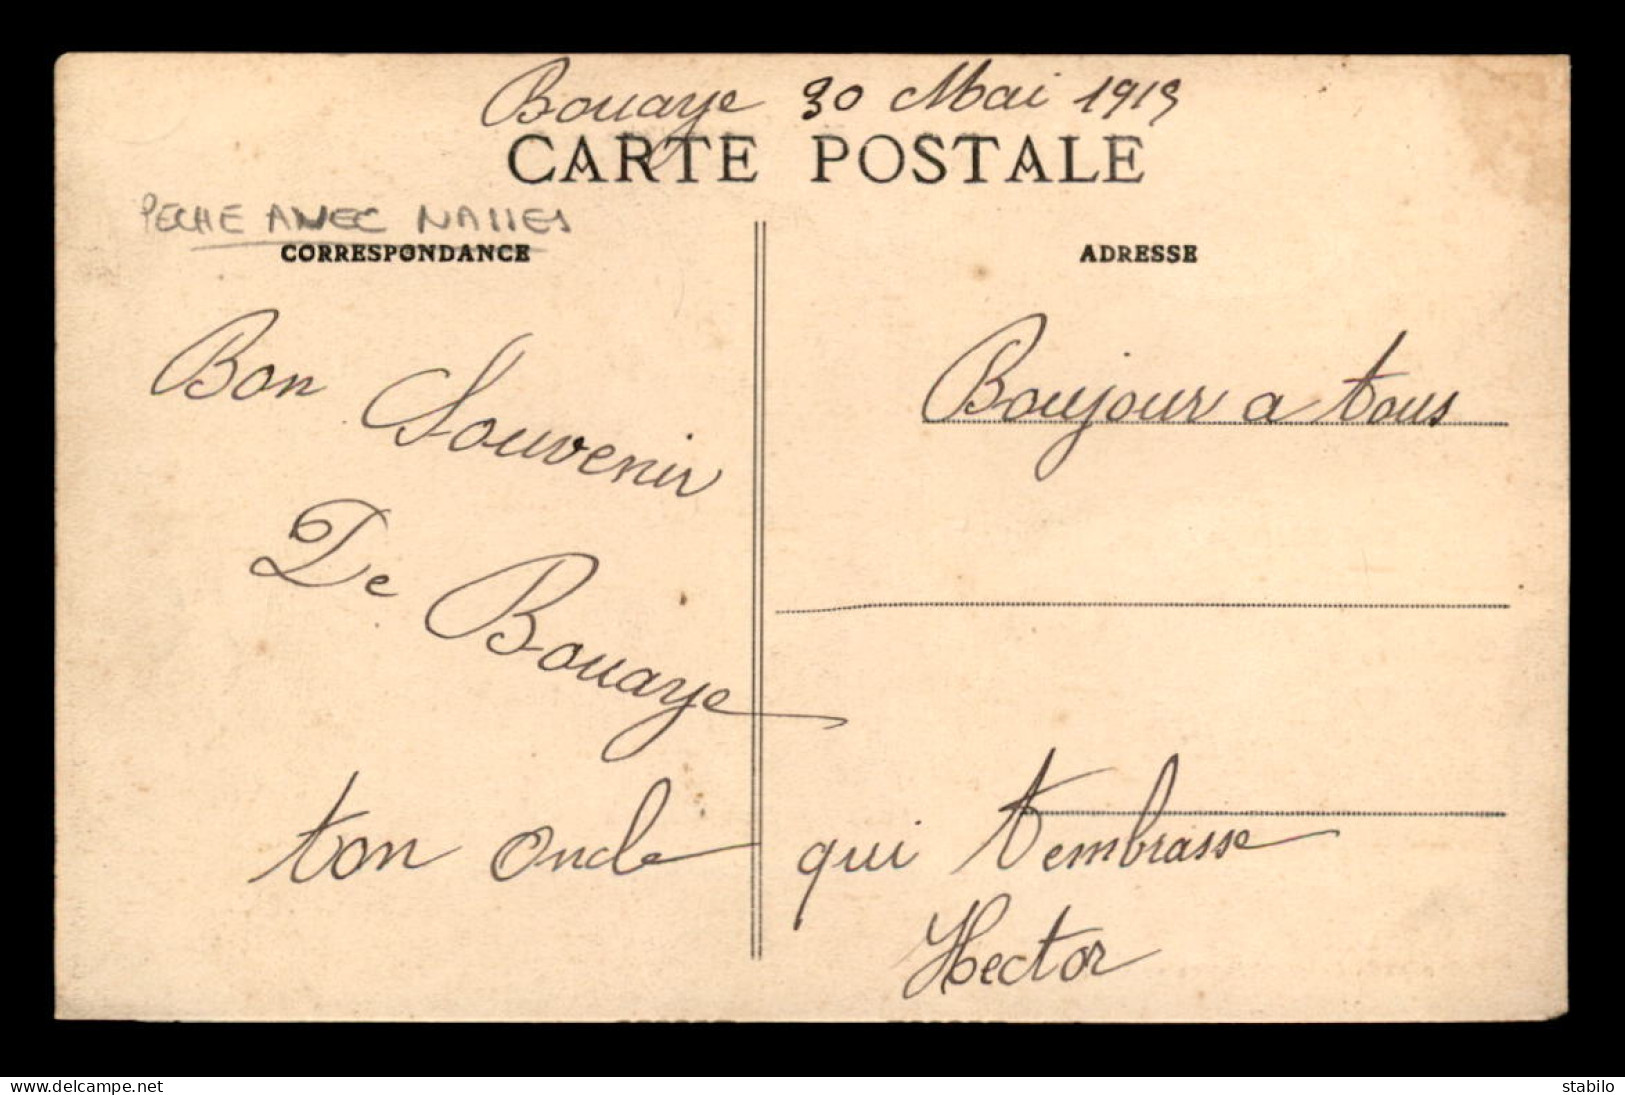 Bouaye 30 Mai 1919
CARTE POSTALE
PECHE AVEC NASSES
CORRESPONDANCE
ADRESSE
Bon Souvenir
De Bouaye
Boujour a tous
ton oncle qui t'embrasse
Hector
www.delcampe.net
stabilo